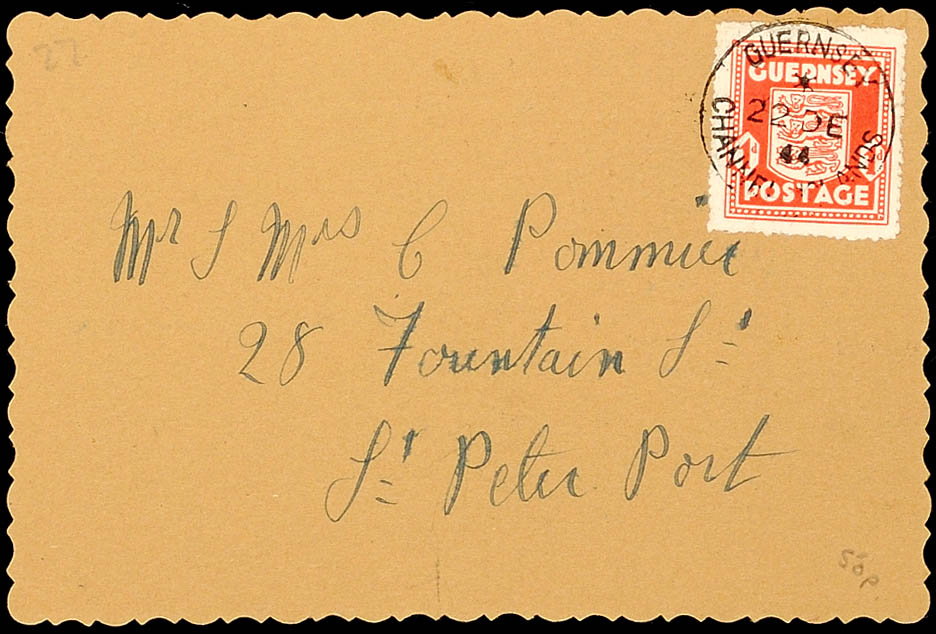 22
GUERNSEY
22 DE
44
CHANNEL ISLANDS
GUERNSEY
1d 1d
POSTAGE
Mr & Mrs C Pommier
28 Fountain St
St Peter Port
50p.